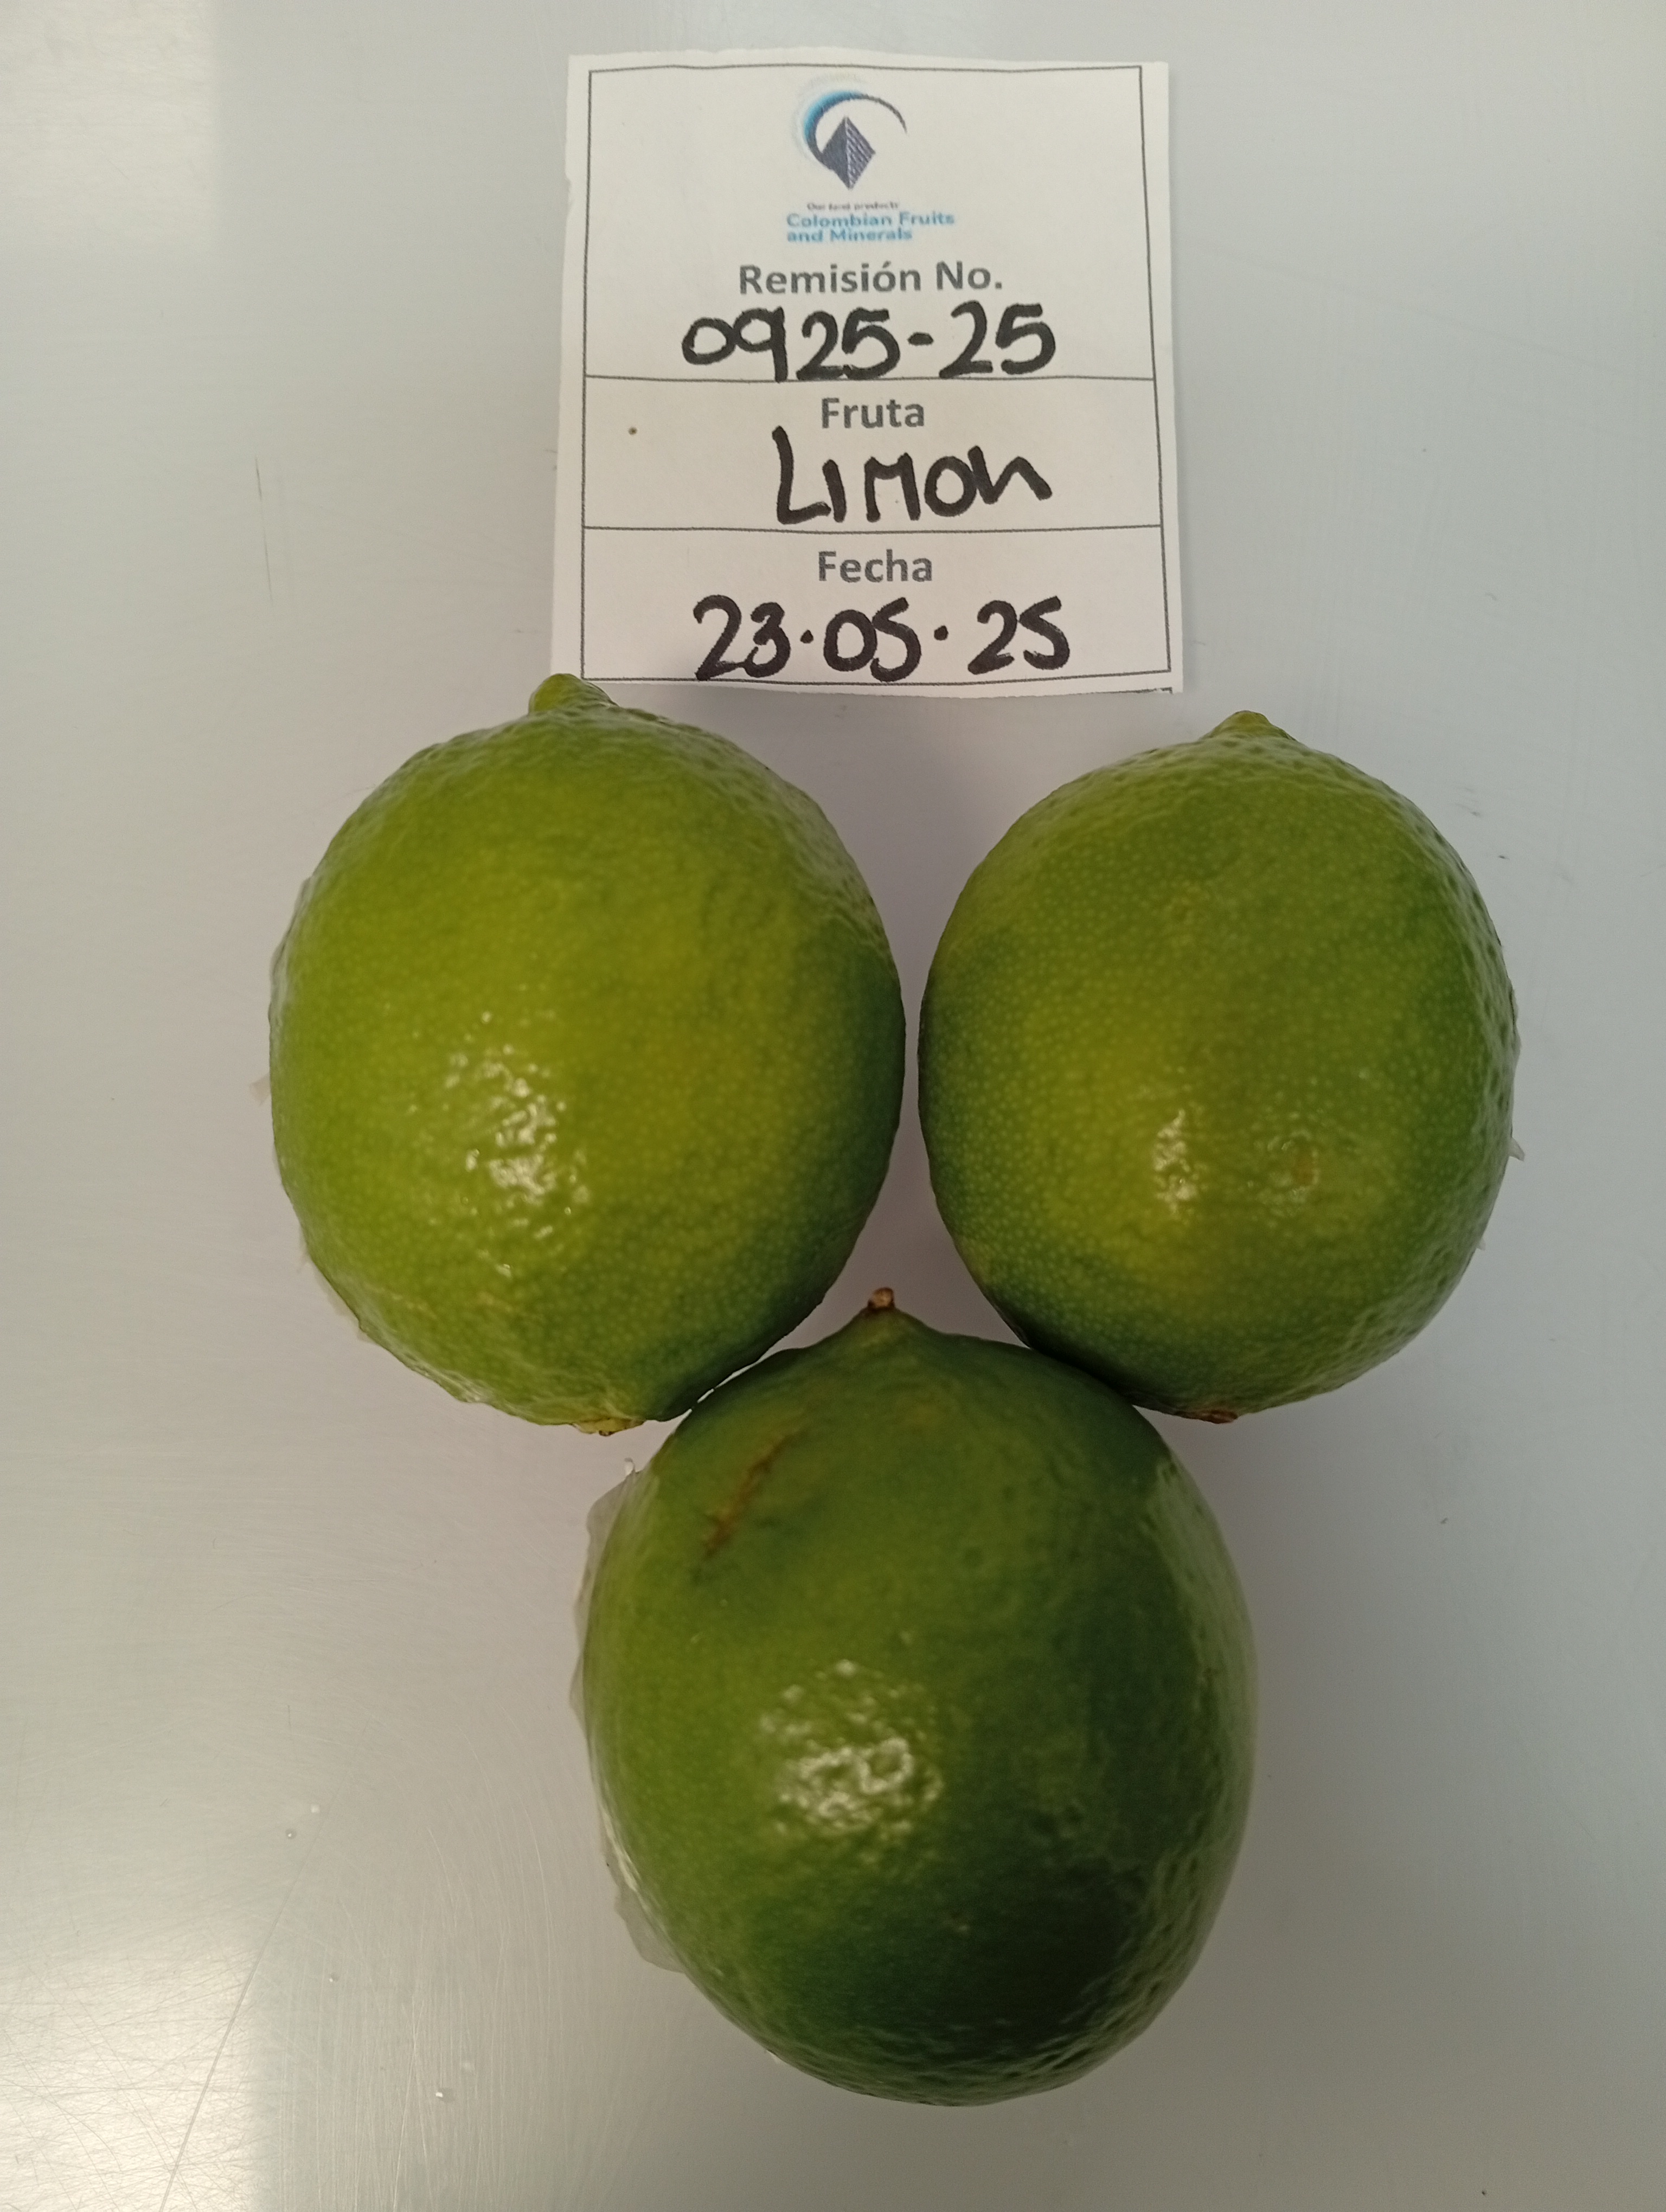 Our best products
Colombian Fruits
and Minerals
Remisión No.
0925-25
Fruta
LIMON
Fecha
23.05.25